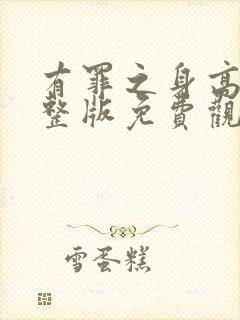 有罪之身高
整版免費觀
雪蛋糕